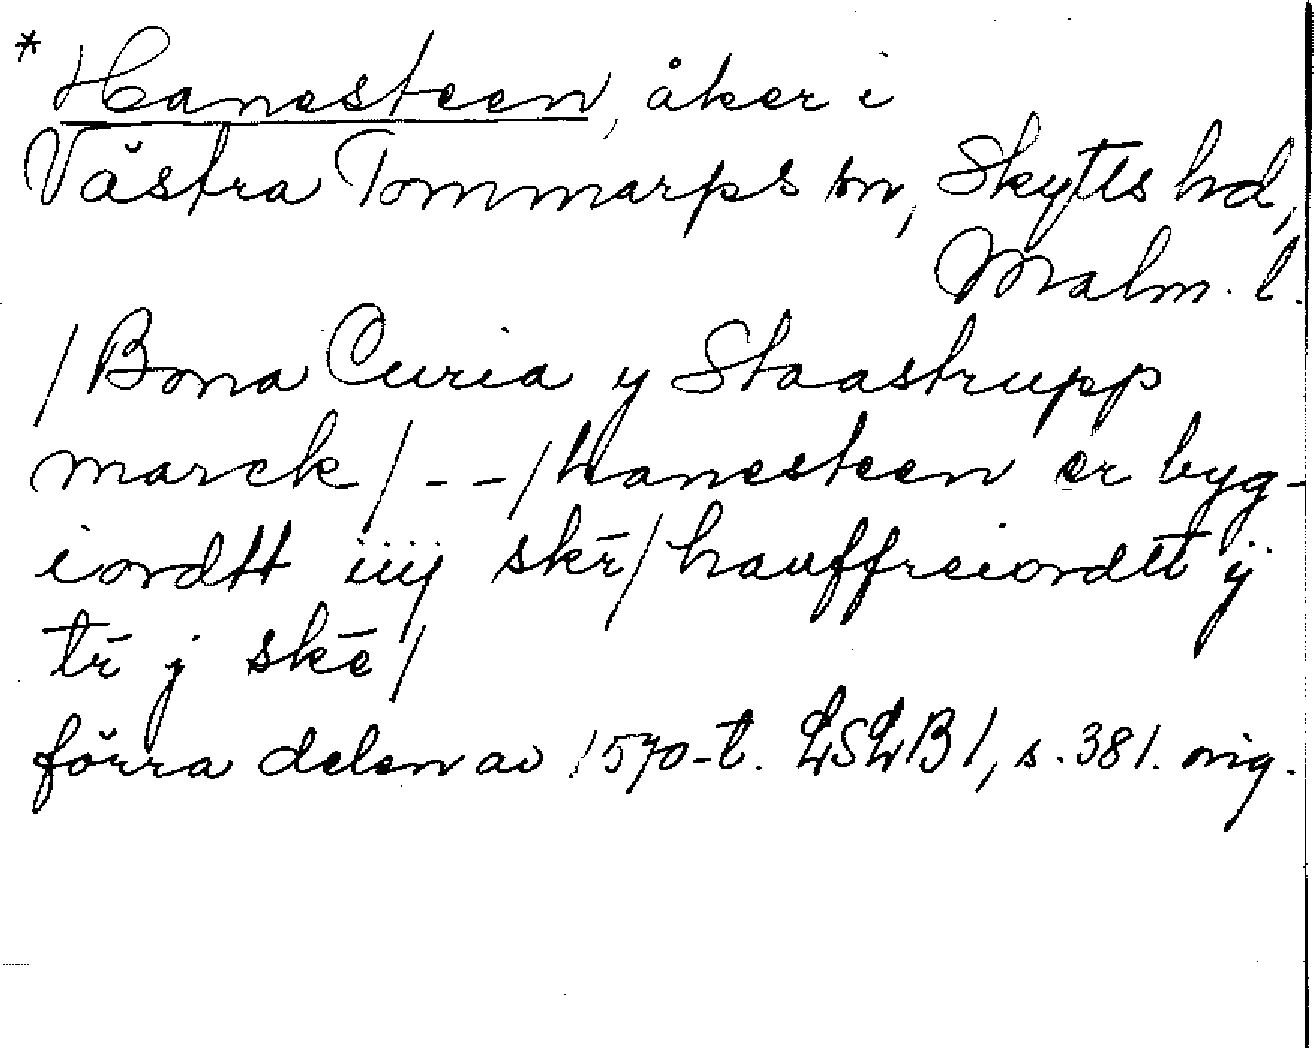 * Hanesteen, åker i
Västra Tommarps sn, Skytts hd,
Malm. l.
/Bona Curia y Staastrupp
marck/ - - /hanesteen er byg-
iordtt iiij skē/ hauffreiordtt ij
trē j skē/
förra delen av 1570-t. LSLB1, s. 381. orig.